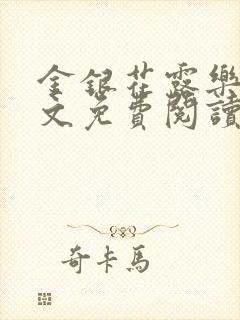 金银花露樂
文免費閱讀
奇卡馬